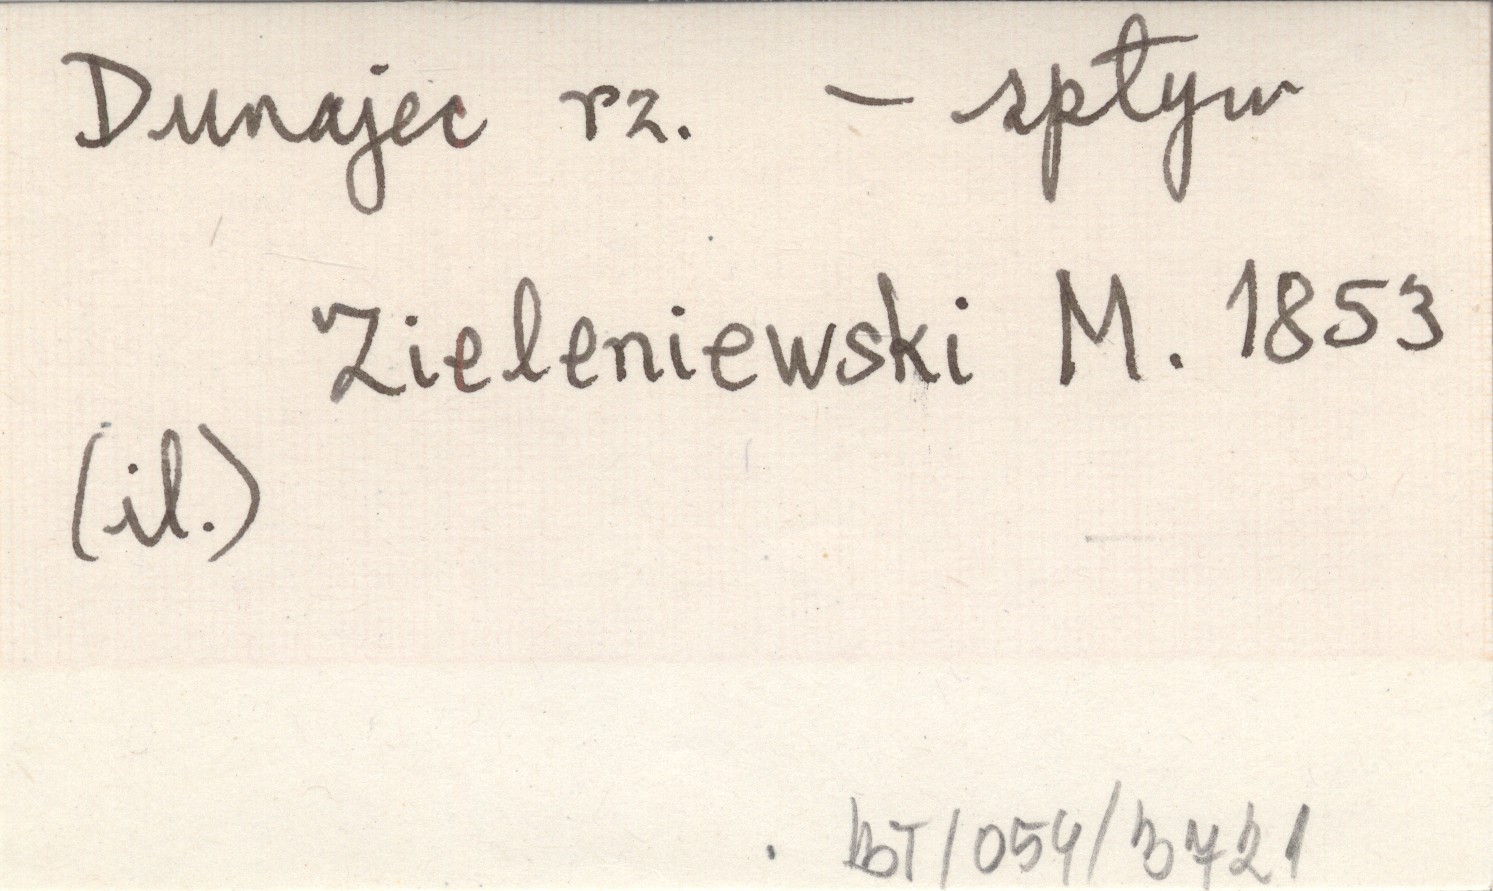 Dunajec rz. – spływ
Zieleniewski M. 1853
(il.)
BT/054/3721